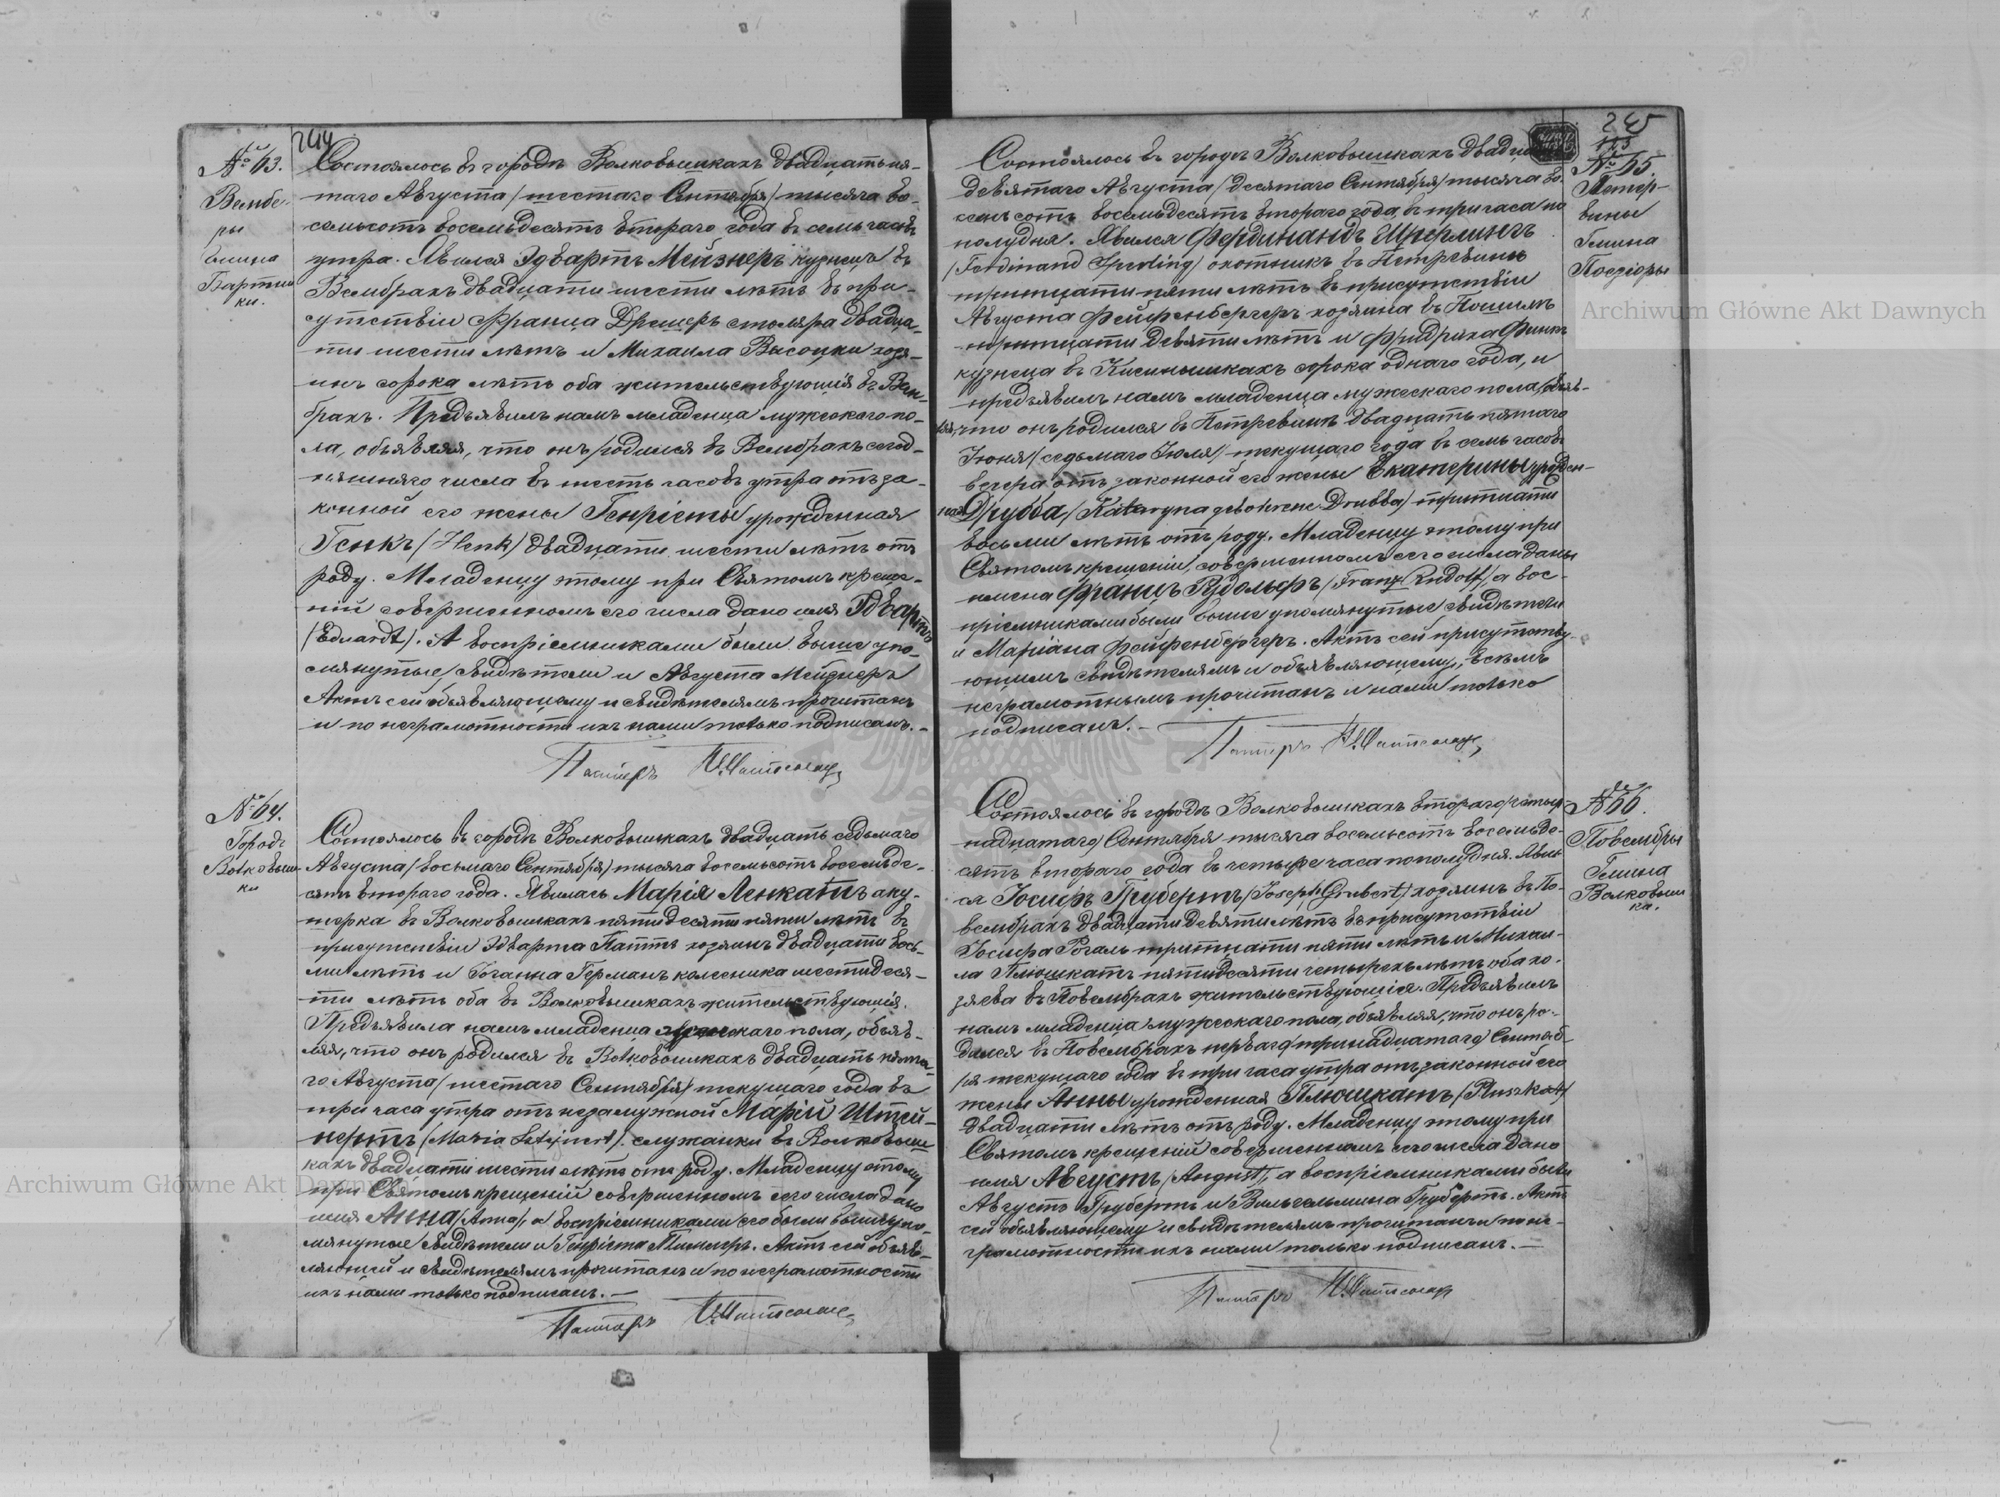 244
№ 63.
Вембе-
ры
гмина
Бартни
ки.
Состоялось въ городѣ Волковышкахъ двадцать пя-
таго Августа /шестаго Сентября/ тысяча во-
семьсотъ восемьдесятъ втораго года въ семь часовъ
утра. Явился Эдвартъ Мейзнеръ кузнецъ въ
Вембрахъ двадцати шести лѣтъ въ при-
сутствіи Франца Дрешеръ столяра двадца-
ти шести лѣтъ и Михаила Высоцки хозя-
инъ сорока лѣтъ оба жительствующія въ Вем-
брахъ. Предъявилъ намъ младенца мужескаго по-
ла, объявляя, что онъ родился въ Вембрахъ сегод-
няшняго числа въ шесть часовъ утра отъ за-
конной его жены Генріеты урожденная
Генкъ /Henk/ двадцати шести лѣтъ отъ
роду. Младенцу этому при Святомъ креще-
ніи совершенномъ сего числа дано имя Эдвартъ
/Eduardt/. А воспріемниками были выше упо-
мянутые свидѣтели и Августа Мейзнеръ
Актъ сей объявляющему и свидѣтелямъ прочитанъ
и по неграмотности ихъ нами только подписанъ. -
Пасторъ
№ 64.
Городъ
Волковыш-
ки
Состоялось въ городѣ Волковышкахъ двадцать седьмаго
Августа /восьмаго Сентября/ тысяча восемьсотъ восемьде-
сятъ втораго года. Явилась Марія Ленкатъ аку-
шерка въ Волковышкахъ пятидесяти пяти лѣтъ въ
присутствіи Эдварта Патъ хозяинъ двадцати вось-
ми лѣтъ и Іоганна Германъ колесника шестидеся-
ти лѣтъ оба въ Волковышкахъ жительствующія.
Предъявила намъ младенца женскаго пола, объяв-
ляя, что онъ родился въ Волковышкахъ двадцать пята-
го Августа /шестаго Сентября/ текущаго года въ
три часа утра отъ незамужной Маріи Штей-
нертъ /Maria Sztejnert/. служанки въ Волковыш-
кахъ двадцати шести лѣтъ отъ роду. Младенцу этому
при Святомъ крещеніи совершенномъ сего числа дано
имя Анна /Anna/, а воспріемниками его были выше упо-
мянутые свидѣтели и Генріета. Актъ сей объяв-
ляющей и свидѣтелямъ прочитанъ и по неграмотности
ихъ нами только подписанъ. -
Пасторъ
245
№ 65.
Петр-
вины
Гмина
Поезіоры
Состоялось въ городѣ Волковышкахъ двадцать
девятаго Августа /десятаго Сентября/ тысяча во-
семьсотъ восемьдесятъ втораго года, въ три часа по
полудня. Явился Фердинандъ Шперлингъ
/Ferdinand Sperling/ охотникъ въ Петревинѣ
тритцати пяти лѣтъ въ присутствіи
Августа Фейфенбергеръ хозяина въ
тритцати девяти лѣтъ и Фридриха Финкъ
кузнеца въ Кисинышкахъ сорока однаго года, и
предъявилъ намъ младенца мужескаго пола, объяв-
ляя, что онъ родился въ Петревинѣ двадцать пятаго
Іюня /седьмаго Іюля/ текущаго года въ семь часовъ
вечера отъ законной его жены Екатерины урожден-
ная Друбба, /Kataryna gebohrene Drubba/ тритцати
восьми лѣтъ отъ роду. Младенцу этому при
Святомъ крещеніи, совершенномъ сего числа даны
имена Францъ Рудольфъ /Franz Rudolf/, а вос-
пріемниками были выше упомянутые свидѣтели
и Маріана Фейфенбергеръ. Актъ сей присутству-
ющимъ свидѣтелямъ и объявляющему, всѣмъ
неграмотнымъ прочитанъ и нами только
подписанъ. -
Пасторъ
№ 66.
Повембры
Гмина
Волковыш
ки.
Состоялось въ городѣ Волковышкахъ втораго /четыр
надцатаго/ Сентября тысяча восемьсотъ восемьде-
сятъ втораго года въ четыре часа пополудня. Явил
ся Іосифъ Грубертъ /Joseph Grubert/ хозяинъ въ По-
вембрахъ двадцати девяти лѣтъ въ присутствіи
Іосифа Рогаль тритцати пяти лѣтъ и Михаи-
ла Плюшкатъ пятидесяти четырехъ лѣтъ оба хо-
зяева въ Повембрахъ жительствующіе. Предъявилъ
намъ младенца мужескаго пола, объявляя, что онъ ро-
дился въ Повембрахъ перваго /тринадцатаго/ Сентяб-
ря текущаго года въ три часа утра отъ законной его
жены Анны урожденная Плюшкатъ /Pluszkat/
двадцати лѣтъ отъ роду. Младенцу этому при
Святомъ крещеніи совершенномъ сего числа дано
имя Августъ /August/, а воспріемниками были
Августъ Грубертъ и Вильгельмина Грубертъ. Актъ
сей объявляющему и свидѣтелямъ прочитанъ и по не-
грамотности ихъ нами только подписанъ. -
Пасторъ
Archiwum Główne Akt Dawnych
Archiwum Główne Akt Dawnych